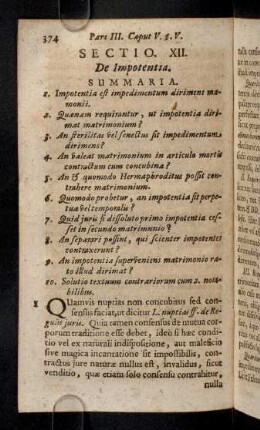 374 Pars III. Caput V. §. V.
SECTIO. XII.
De Impotentia.
SUMMARIA.
1. Impotentia est impedimentum dirimens ma-
monii.
2. Quænam requirantur, ut impotentia diri-
mat matrimonium?
3. An sterilitas vel senectus sit impedimentum
dirimens?
4. An valeat matrimonium in articulo mortis
contractum cum concubina?
5. An & quomodo Hermaphroditus possit con-
trahere matrimonium.
6. Quomodo probetur, an impotentia sit perpe-
tua vel temporalis?
7. Quid juris si dissoluto primo impotentia ces-
set in secundo matrimonio?
8. An separari possint, qui scienter impotentes
contraxerunt?
9. An impotentia superveniens matrimonio ra-
to illud dirimat?
10. Solutio textuum contrariorum cum 2. nota-
bilibus.
1 QUamvis nuptias non concubitus sed con-
sensus faciat, ut dicitur L. nuptias ff. de Re-
gulis juris. Quia tamen consensus de mutua cor-
porum traditione esse debet, ideò si hæc condi-
tio vel ex naturali indispositione, aut maleficio
sive magica incantatione sit impossibilis, con-
tractus jure naturæ nullus est, invalidus, sicut
venditio, quæ etiam solo consensu contrahitur,
nulla